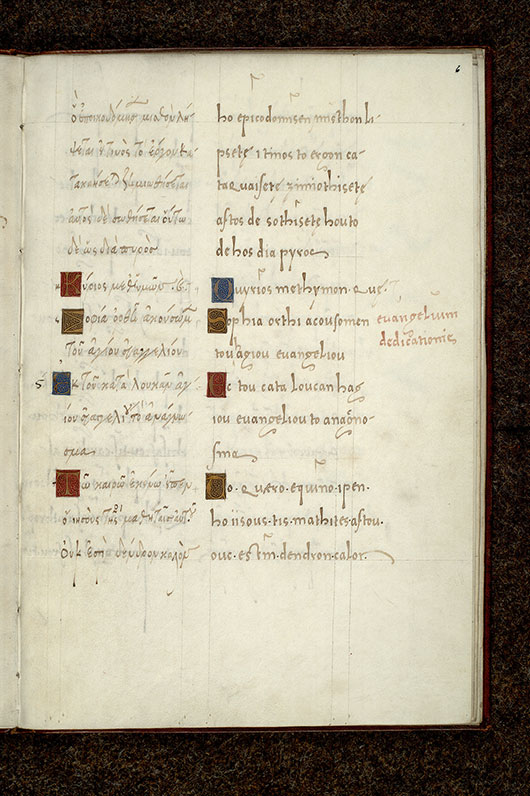 6
ὃ ἐπικοδόμησεν μισθὸν λή
ψεται εἴ τινος τὸ ἔργον κα
τακαήσεται ζημιωθήσεται
αὐτὸς δὲ σωθήσεται οὕτω
δὲ ὡς διὰ πυρός
Κύριος μεθυμῶν
Σοφία ὀρθοὶ ἀκούσωμεν
τοῦ ἁγίου εὐαγγελίου
Ἐκ τοῦ κατὰ λουκὰν ἁγ
ίου εὐαγγελίου τὸ ἀνάγνω
σμα
Τῷ καιρῷ ἐκείνῳ εἶπεν
ὁ ἰησοῦς τῆς μαθηταῖς αὐτοῦ
Οὐκ ἐστὶ δένδρον καλὸν
ho epicodomisen misthon li
psete i tinos to ergon ca
taquaisete zimiothisete
aftos de sothisete houto
de hos dia pyros
Quyrios methymon. que.
Sophia orthi acousomen
tou agiou evangeliou
Ec tou cata loucan hag
iou evangeliou to anagno-
sma
To. quaero. equino. ipen.
ho iisous. tis. mathites. aftou.
ouc. estin. dendron. calon.
evangelium
dedicationis